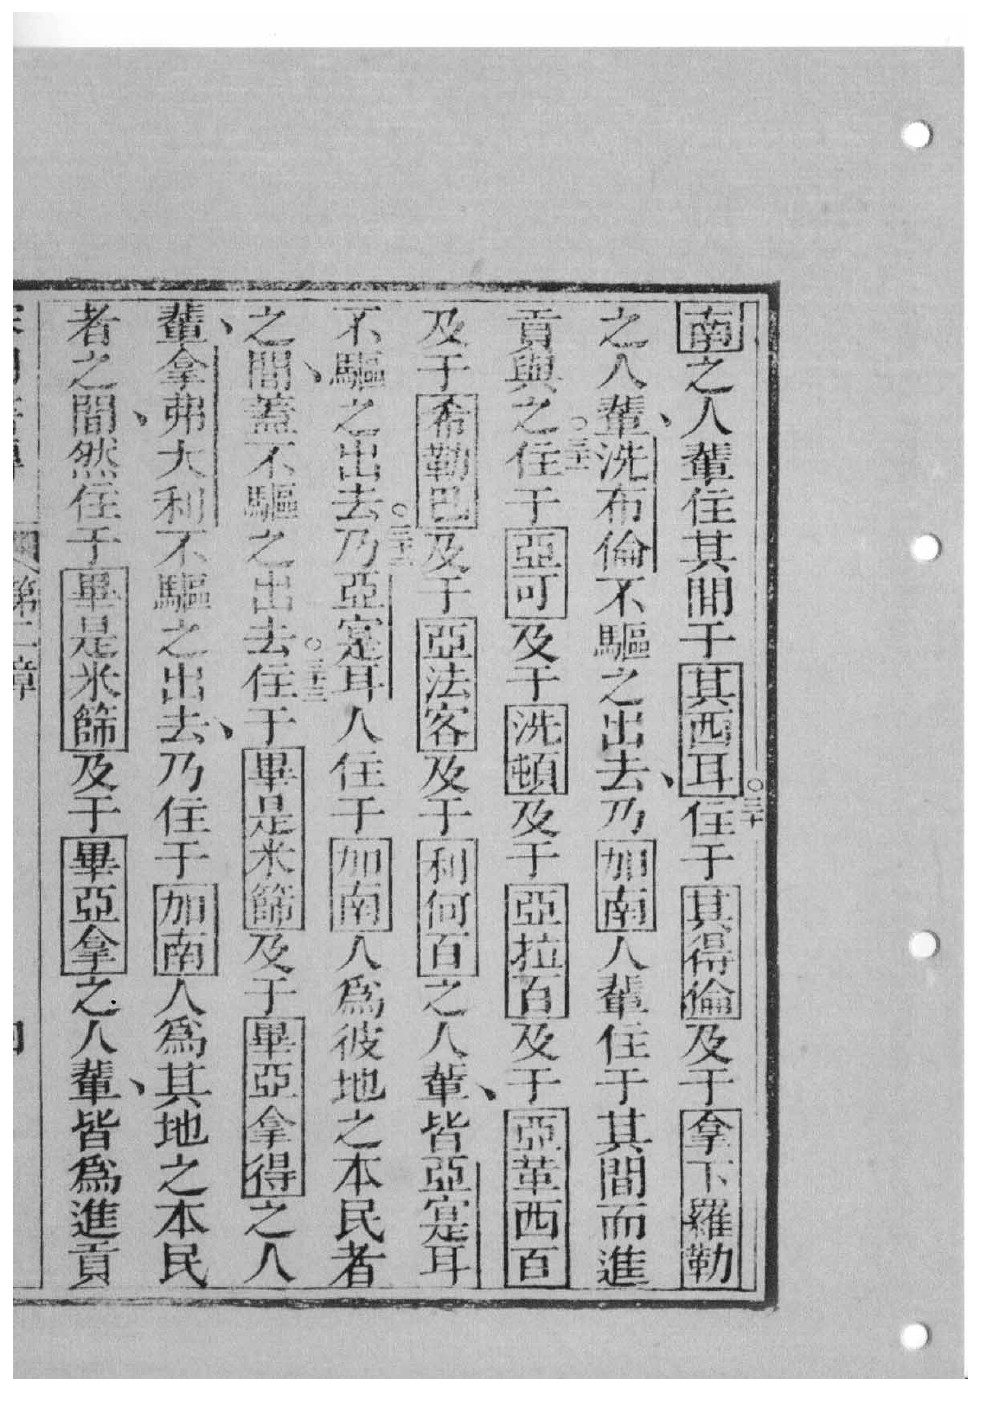 南之人輩住其間于其西耳○三十住于其得倫及于拿下羅勒
之人輩、洗布倫不驅之出去、乃加南人輩住于其間而進
貢與之○三十一住于亞可及于洗頓及于亞拉百及于亞革西百
及于希勒巴及于亞法客及于利何百之人輩、皆亞寔耳
不驅之出去○三十二乃亞寔耳人住于加南人為彼地之本民者
之間、蓋不驅之出去○三十三住于畢是米篩及于畢亞拿得之人
輩、拿弗大利不驅之出去、乃住于加南人為其地之本民
者之間、然住于畢是米篩及于畢亞拿之人輩、皆為進貢
第二章